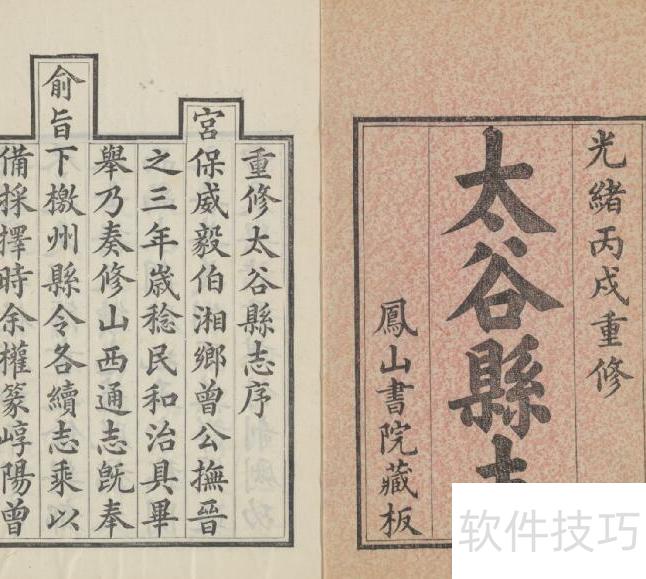 光緒丙戌重修
太谷縣
鳳山書院藏板
重修太谷縣志序
宮保威毅伯湘鄉曾公撫晉
之三年歲稔民和治具畢
舉乃奏修山西通志既奉
俞旨下檄州縣令各續志乘以
備採擇時余權篆崞陽曾
软件技巧